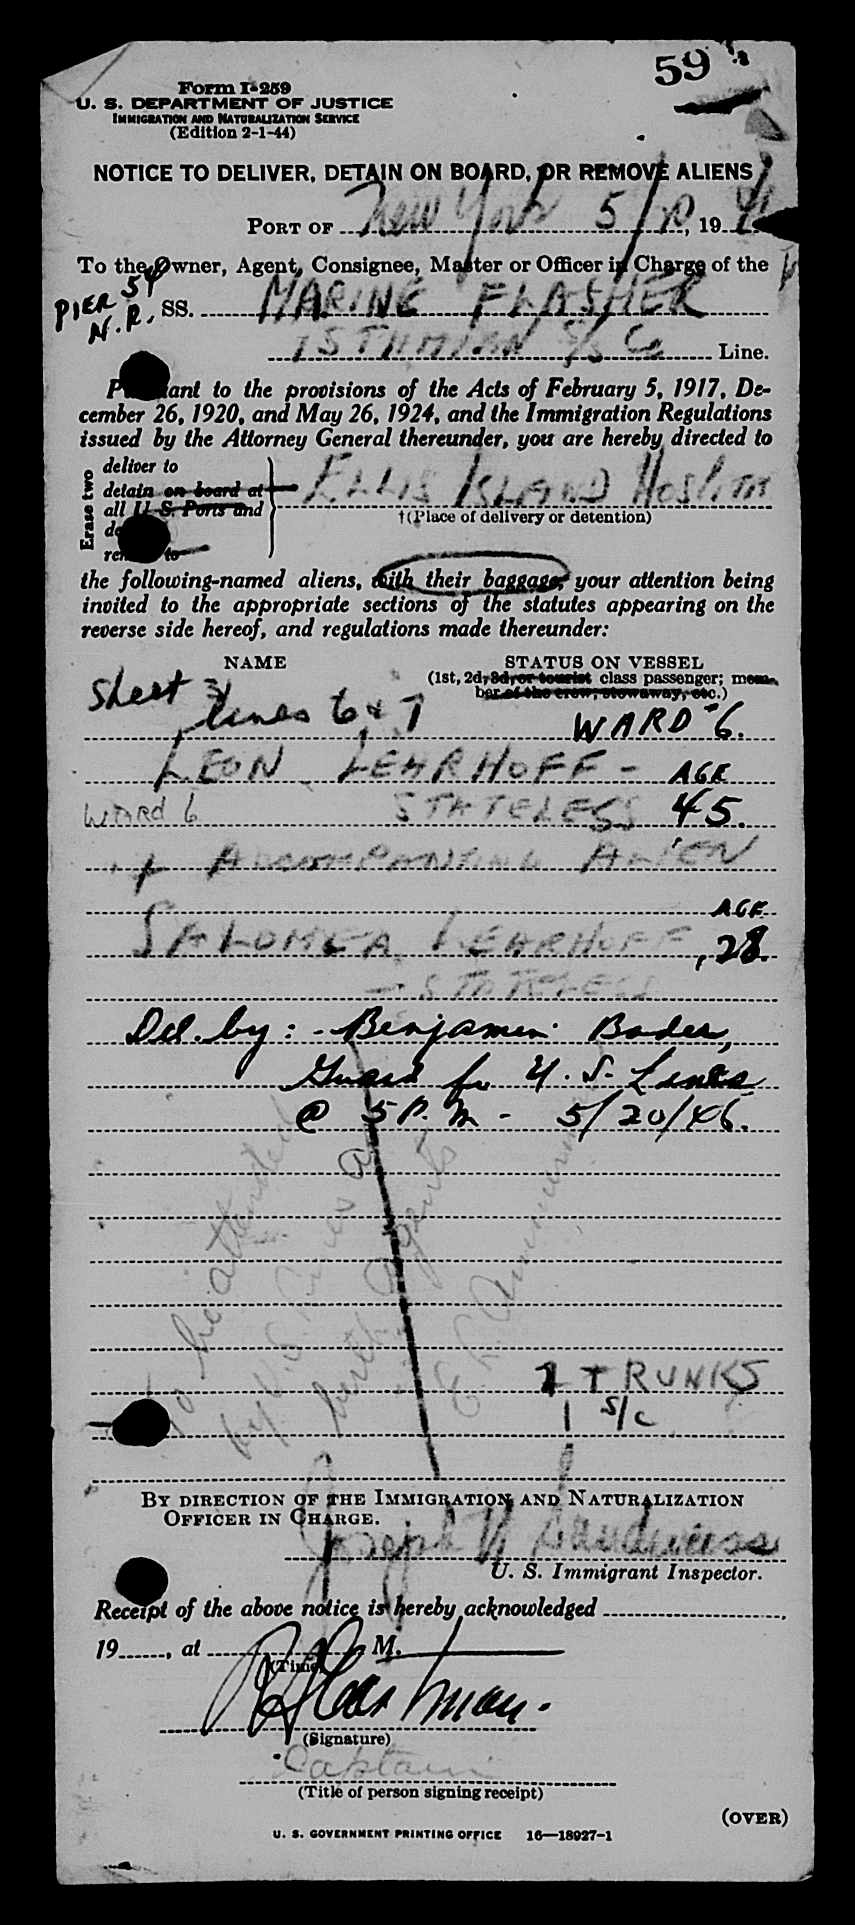 59
Form I-259
U. S. DEPARTMENT OF JUSTICE
IMMIGRATION AND NATURALIZATION SERVICE
(Edition 2-1-44)
NOTICE TO DELIVER, DETAIN ON BOARD, OR REMOVE ALIENS
PORT OF New York 5/20, 19
To the Owner, Agent, Consignee, Master or Officer in Charge of the
PIER 54
N. R.
SS. MARINE FLASHER
ISTHMIAN S/S Co Line.
ant to the provisions of the Acts of February 5, 1917, De-
cember 26, 1920, and May 26, 1924, and the Immigration Regulations
issued by the Attorney General thereunder, you are hereby directed to
Erase two
deliver to
detain on board at
all U. S. Ports and
to
ELLIS ISLAND
†(Place of delivery or detention)
the following-named aliens, with their baggage, your attention being
invited to the appropriate sections of the statutes appearing on the
reverse side hereof, and regulations made thereunder:
NAME STATUS ON VESSEL
(1st, 2d, 3d, or tourist class passenger; mem-
ber of the crew, stowaway, etc.)
Sheet
lines 6 & 7 WARD #6.
LEON LEHRHOFF - AGE
Ward 6 STATELESS 45.
+ ACCOMPANYING ALIEN
AGE
SALOMEA LEHRHOFF, 28.
- STATELESS
Del. by: - Benjamin Bader,
Guard for U. S. Lines
@ 5 P. M - 5/20/46.
To be attended
by U.S. Lines as
berth agents
TRUNKS
1 S/C
BY DIRECTION OF THE IMMIGRATION AND NATURALIZATION
OFFICER IN CHARGE.
Joseph
U. S. Immigrant Inspector.
Receipt of the above notice is hereby acknowledged
19, at M.
(Time)
(Signature)
Captain
(Title of person signing receipt)
(OVER)
U. S. GOVERNMENT PRINTING OFFICE 16—18927-1